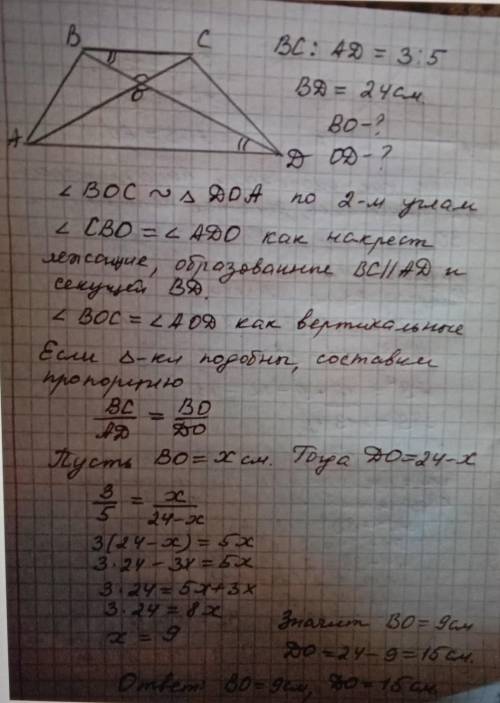 B
C
BC : AD = 3 : 5
BD = 24 см.
O
BO - ?
A
D
OD - ?
∠ BOC ~ △ DOA по 2-м углам
∠ CBO = ∠ ADO как накрест
лежащие, образованные BC||AD и
секущей BD.
∠ BOC = ∠ AOD как вертикальные
Если △-ки подобны, составим
пропорцию
BC/AD = BO/DO
Пусть BO = x см. Тогда DO = 24 - x
3/5 = x/24-x
3(24 - x) = 5x
3·24 - 3x = 5x
3·24 = 5x + 3x
3·24 = 8x
x = 9
Значит BO = 9 см
DO = 24 - 9 = 15 см.
Ответ BO = 9 см, DO = 15 см.